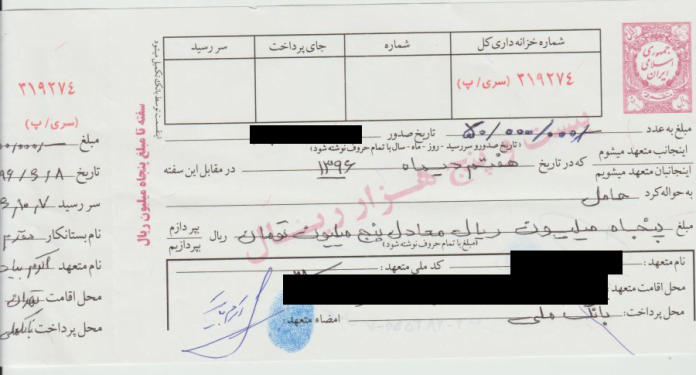 شماره خزانه داری کل
شماره
جای پرداخت
سر رسید
۳۱۹۲۷۴ (سری/پ)
جمهوری
اسلامی
ایران
سفته تا مبلغ پنجاه میلیون ریال
بیست و پنج هزار ریال
مبلغ به عدد ۵۰/۰۰۰/۰۰۰/ تاریخ صدور
(تاریخ صدور و سررسید - روز - ماه - سال با تمام حروف نوشته شود)
اینجانب متعهد میشوم
اینجانبان متعهد میشویم
که در تاریخ هفتم دیماه ۱۳۹۶ در مقابل این سفته
به حواله کرد حامل
مبلغ پنجاه میلیون ریال معادل پنج میلیون تومان ریال
بپردازم
بپردازیم
(مبلغ با تمام حروف نوشته شود)
نام متعهد:
کد ملی متعهد:
محل اقامت متعهد:
محل پرداخت: بانک ملی
امضاء متعهد:
۳۱۹۲۷۴
(سری/پ)
مبلغ
تاریخ ۹۶/۳/۸
سر رسید ۱۰/۷
نام بستانکار
نام متعهد اکرم
محل اقامت تهران
محل پرداخت بانک ملی